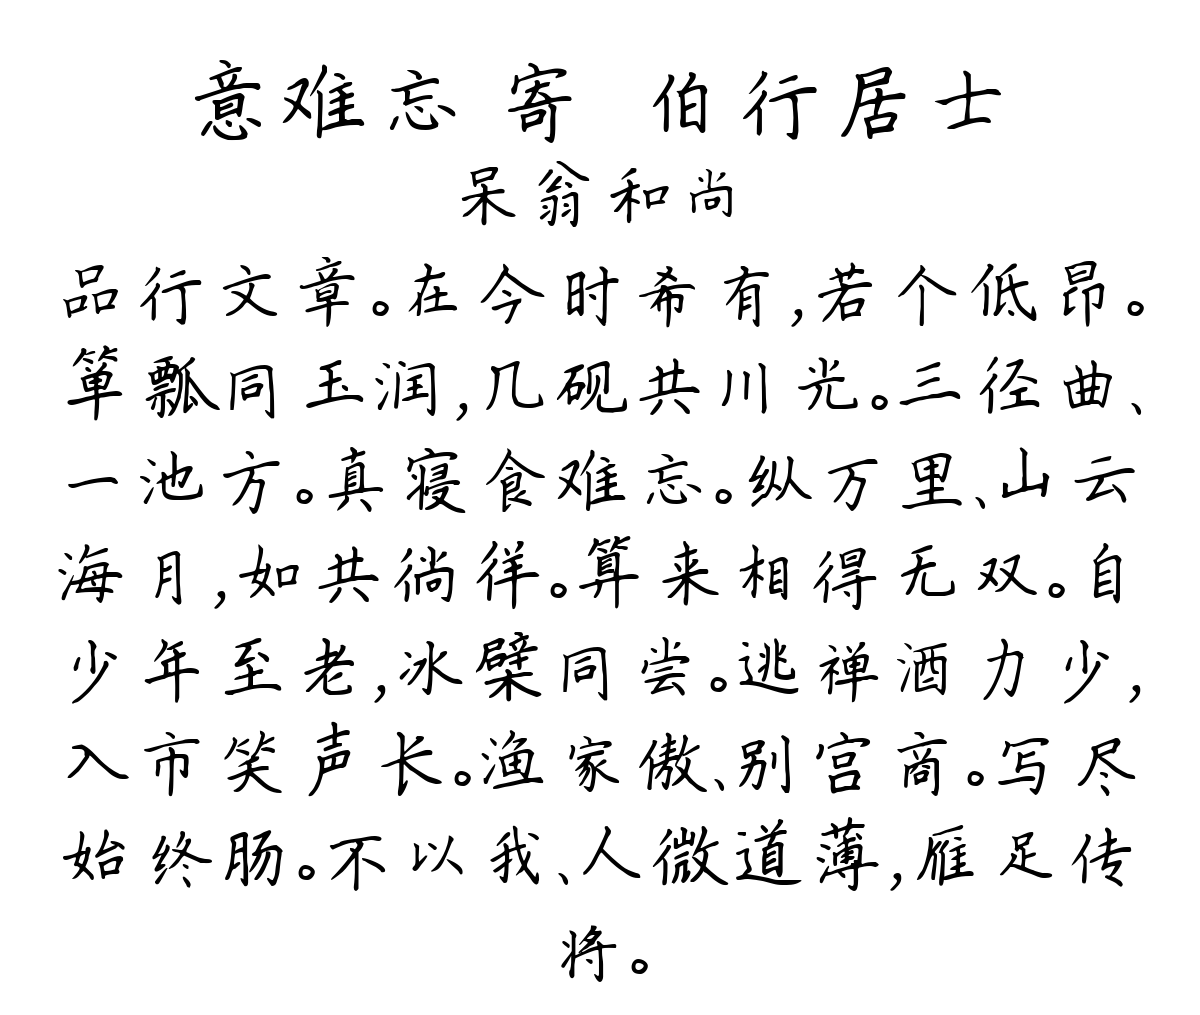 意难忘 寄 伯行居士
呆翁和尚
品行文章。在今时希有,若个低昂。
箪瓢同玉润,几砚共川光。三径曲、
一池方。真寝食难忘。纵万里、山云
海月,如共徜徉。算来相得无双。自
少年至老,冰檗同尝。逃禅酒力少,
入市笑声长。渔家傲、别宫商。写尽
始终肠。不以我、人微道薄,雁足传
将。